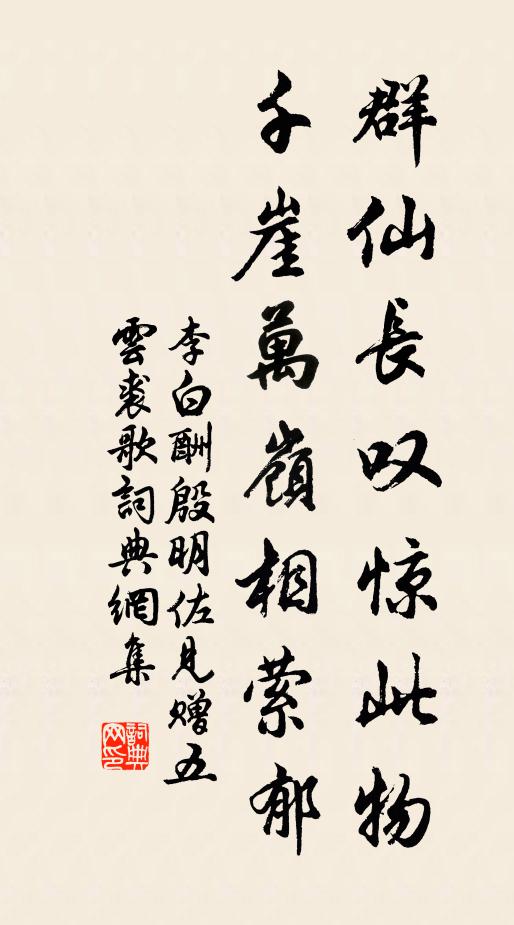 群仙長叹惊此物
千崖萬嶺相萦郁
李白酬殷明佐見赠五
雲裘歌詞典網集
詞典
网印